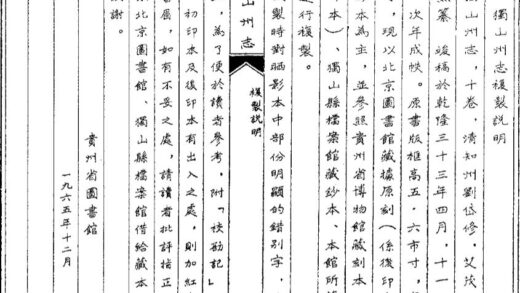 獨山州志複製說明
獨山州志，十卷，清知州劉岱修，艾茂
纂，竣稿於乾隆三十三年四月，十一
次年成帙。原書版框高五·六市寸，
，現以北京圖書館藏攝原刻（係復印
本為主，並參照貴州省博物館藏刻本
本）、獨山縣檔案館藏鈔本、本館所
行複製。
製時對晒影本中部份明顯的錯別字，
山州志
複製說明
，為了便於讀者參考，附「校勘記」
初印本及復印本有出入之處，則加紅
，如有不妥之處，請讀者批評指正
北京圖書館、獨山縣檔案館借給藏本
謝。
貴州省圖書館
一九六五年十二月